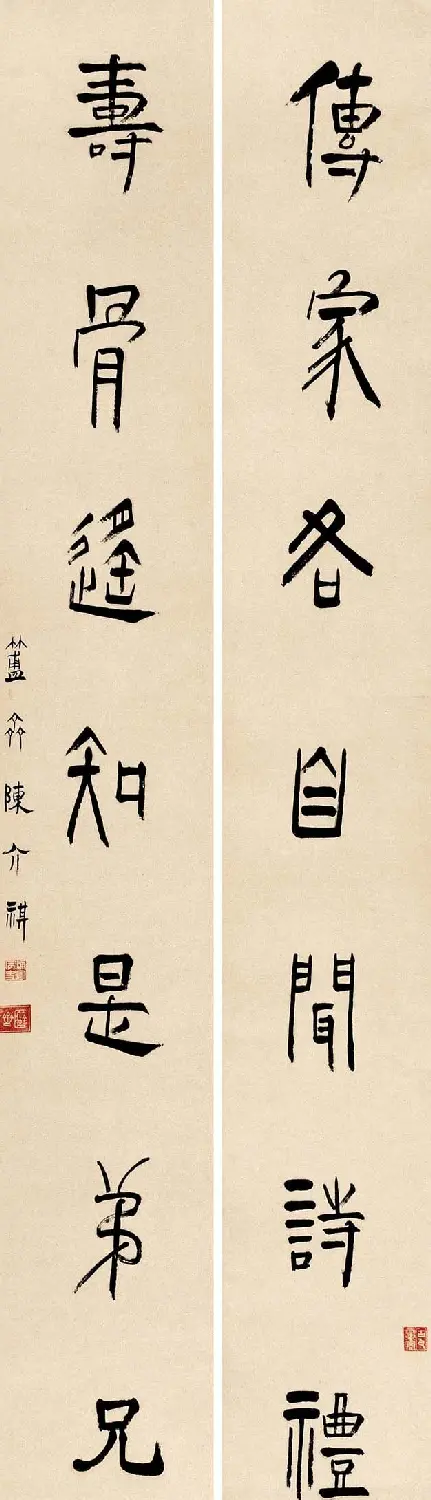 傳家各自聞詩禮
壽骨遥知是弟兄
簠齋陳介祺